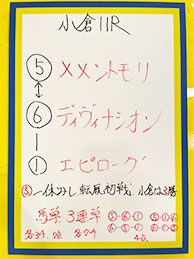 小倉11R
⑤ メメントモリ
↕
⑥ ディヴィナシオン
|
① エピローグ
⑤一休みし転厩初戦 小倉は3勝
馬単 3連単 ⑤⑥① ⑤①⑥